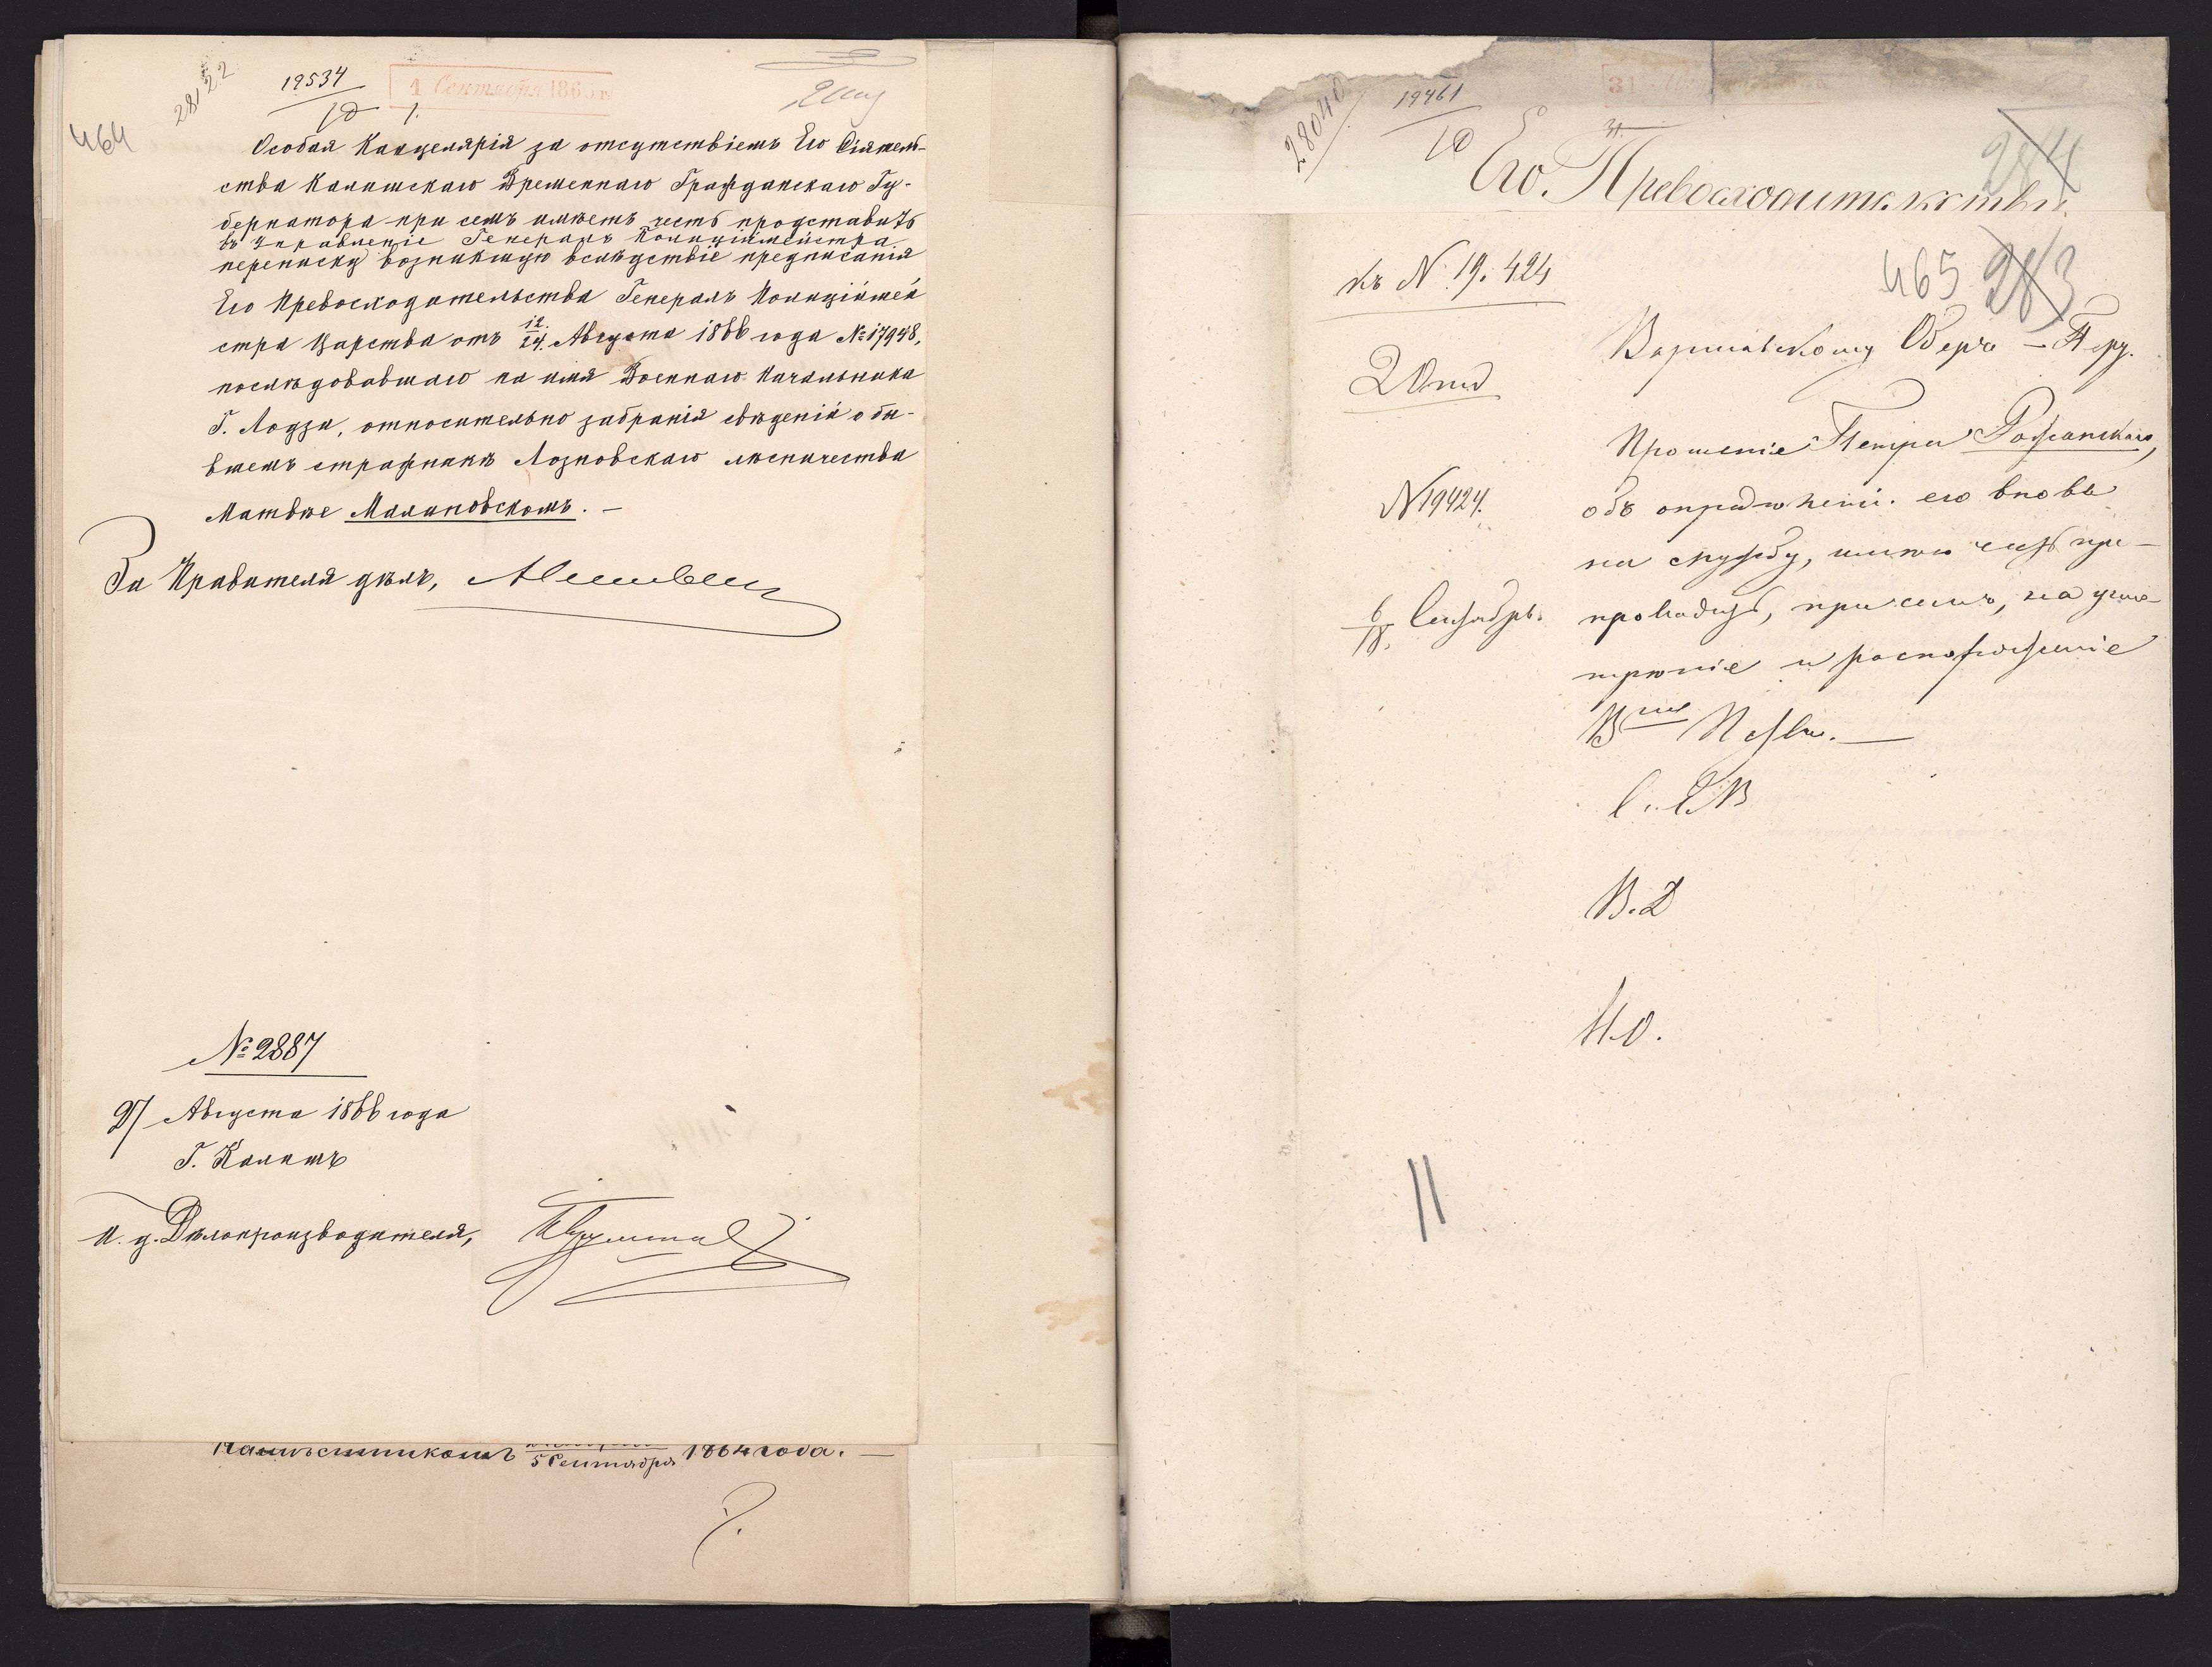 28122
19534
10 1.
1 Сентября 186 г.
464
Особая Канцелярія за отсутствіемъ Его Сіятель-
ства Калишскаго Временнаго Гражданскаго Гу-
бернатора при семъ имѣетъ честь представить
въ Управленіе Генералъ Полиціймейстра
переписку возникшую вслѣдствіе предписанія
Его Превосходительства Генералъ Полиціймей
стра Царства отъ 12/24. Августа 1866 года №17948,
послѣдовавшаго на имя Военнаго Начальника
Г. Лодзи, относительно забранія свѣденій о бы-
вшемъ стражникѣ Лозновскаго лѣсничества
Матвѣе Малиновскомъ. —
За Правителя дѣлъ,
№ 2887
27 Августа 1866 года
Г. Калишъ
И. д. Дѣлопроизводителя,
Намѣстникомъ 5 Сентября 1864 года. —
28040
19461
10
31
31.
Его Превосходительству
284
къ N. 19. 424
465 283
Варшавскому Оберъ-
2 Отд
Прошеніе Петра Рожанскаго,
N 19424.
объ опредѣленіи его вновь
на службу, имѣю честь пре-
6/18. Сентябрь.
проводить, при семъ, на усмо-
трѣніе и распоряженіе
В.Д
Н.О.